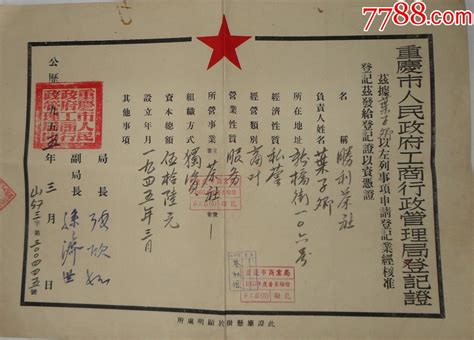 7788.com
重慶市人民政府工商行政管理局登記證
茲據葉子卿以左列事項申請登記業經核准
登記茲發給登記證以資憑證
名稱 勝利茶社
負責人姓名 葉子卿
所在地址 一〇六号
經營類別 商业
經濟性質 私營
營業性質 服务
所營事業 主要 茶社
組織方式 獨資
資本總額 伍拾陸元
設立年月 一九四五年三月
其他事項
局長
副局長
公歷一九五五年三月 日
重慶市人民政府工商行政管理局
重慶市商業局
此證應懸掛於顯明處所